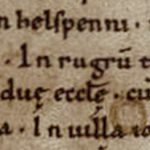 n helspenni ·
· In rugrū t
duę ecclę̄ · cu
a · In uilla